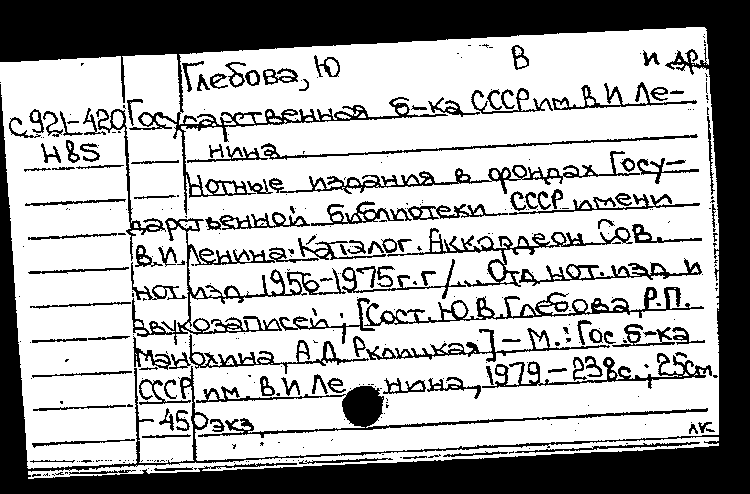 Глебова, Ю В и др.
с.921-420 Государственная б-ка СССР им. В.И Ле-
Н85 нина
Нотные издания в фондах Госу-
дарственной библиотеки СССР имени
В.И.Ленина: Каталог. Аккордеон Сов.
нот. изд. 1956-1975г.г /... Отд нот. изд и
звукозаписей; [Сост. Ю.В.Глебова, Р.П.
Манохина, А.Д. Рклицкая].- М.: Гос. б-ка
СССР им. В.И. Ле нина, 1979.- 238с.; 25см.
- 450экз
лк